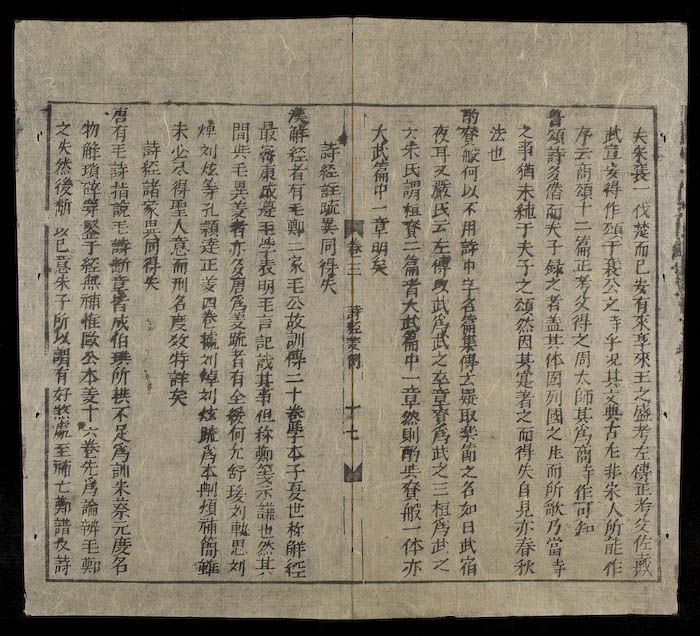 夫朱襄一伐楚而已安有來享來王之盛考左傳正考父佐戴
武宣安得作頌于襄公之寺乎况其文典古左非宋人所能作
序云商頌十二篇正考父得之周太師其爲商寺作可知
魯頌詩多僣而夫子録之者盖其体固列國之风而所歌乃當寺
之事猶未純于夫子之頌然因其寔着之而得失自見亦春秋
法也
酌賚般何以不用詩中字名篇集傳玄疑取楽節之名如曰武宿
夜耳又嚴氏云左傳以武爲武之卒章賚爲武之三桓爲武之
六朱氏謂桓賚二篇者大武篇中一章然則酌與賚般一体亦
大武篇中一章明矣
詩經註疏異同得失
漢解經者有毛鄭二家毛公故訓傳二十卷學本子夏世称解經
最得康成遵毛學表明毛言記識其事但称鄭笺示謙也然其
間与毛異义者亦多唐爲义疏者有全緩何允舒瑗刘軌思刘
焯刘炫等孔穎達正义四卷據刘焯刘炫疏爲本刪煩補簡雖
未必尽得聖人意而刑名度数特詳矣
詩經諸家異同得失
唐有毛詩指說毛詩断章晋成伯璵所撰不足爲訓宋蔡元度名
物解瑣碎穿鑿于經無補惟歐公本义十六卷先爲論辨毛鄭
之失然後断以巳意朱子所以謂有好煞處至補亡鄭譜及詩
卷三
詩經义例
十七